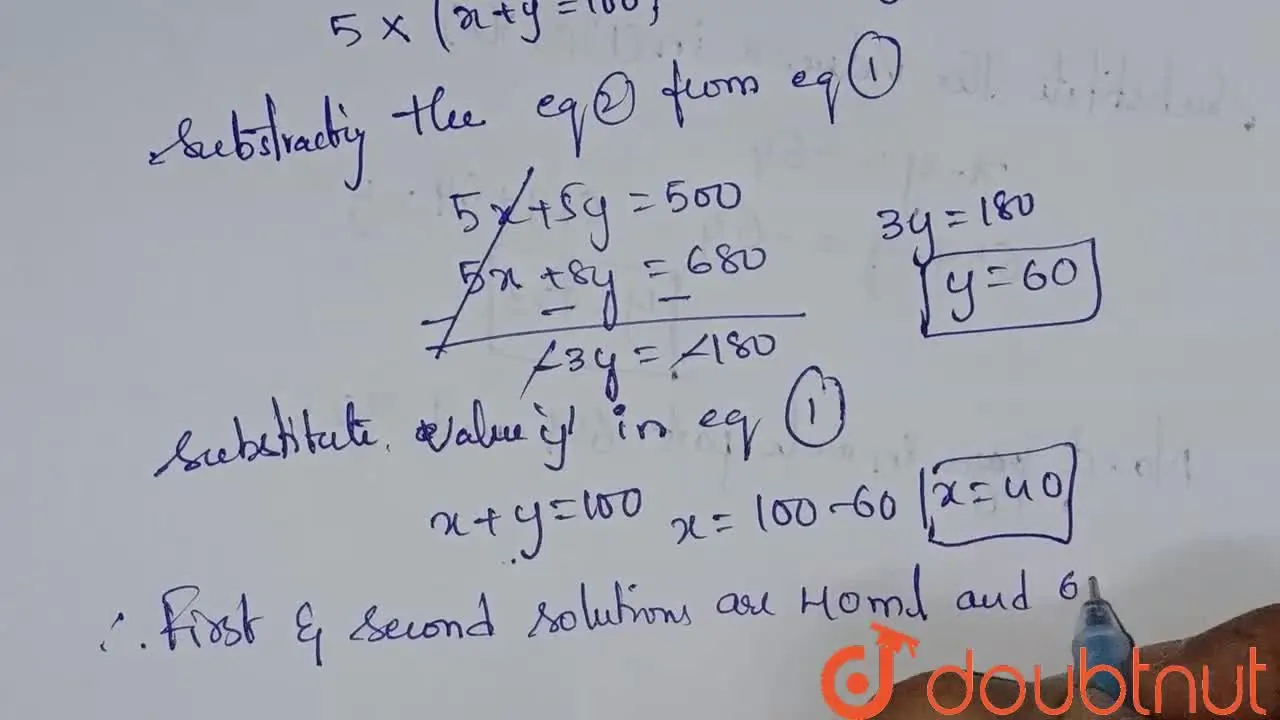 5 × (x+y=100)
Substracting the eq ② from eq ①
5x+5y=500
5x+8y=680
− − −
-3y=-180
3y=180
y=60
Substitute value 'y' in eq ①
x+y=100 x=100-60 x=40
∴ First & second solutions are 40ml and 6
doubtnut